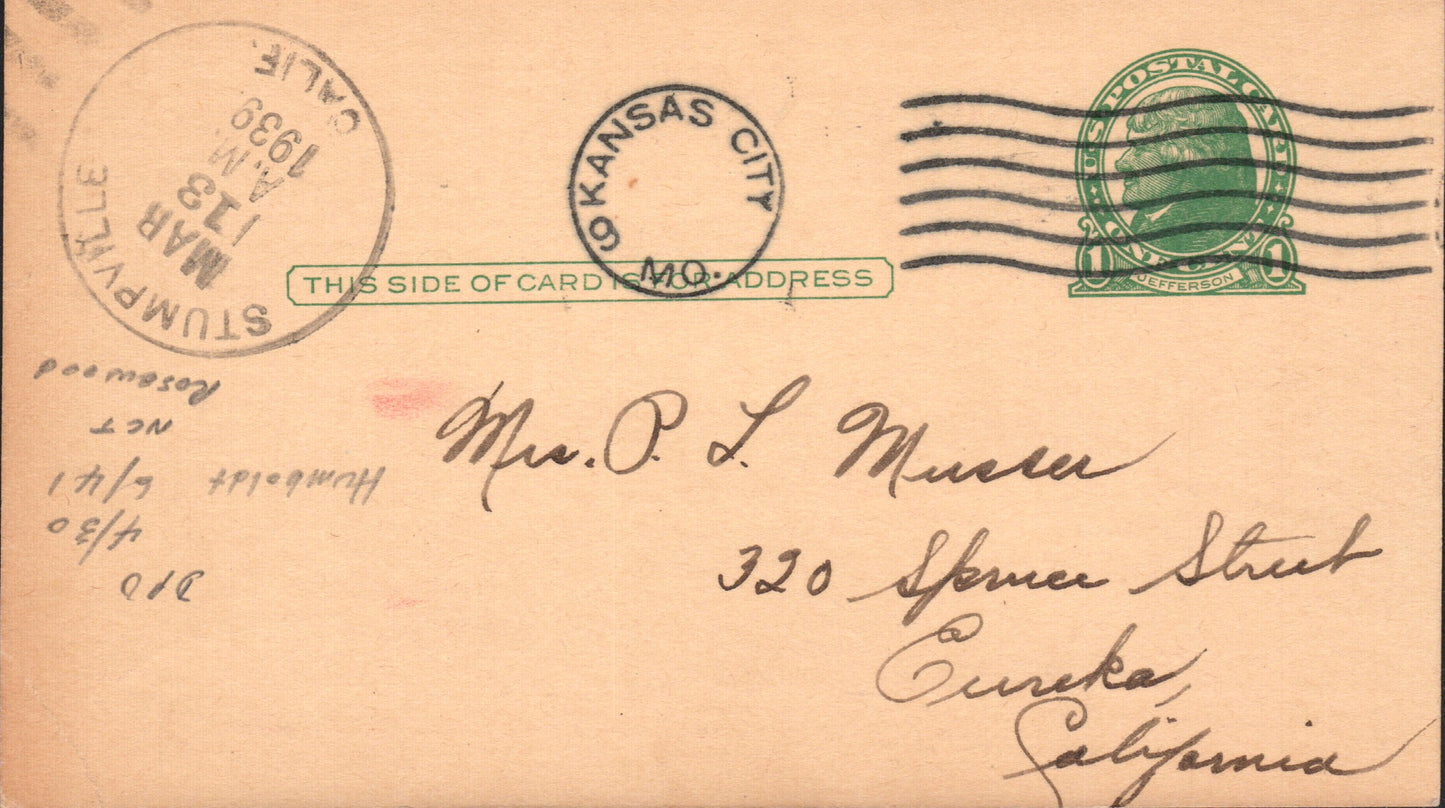 STUMPVILLE CALIF.
MAR
13
A.M.
1939
KANSAS CITY
MO.
6
U.S. POSTAL CARD
ONE CENT
1 JEFFERSON 1
THIS SIDE OF CARD IS FOR ADDRESS
Mrs. P. L. Musser
320 Spruce Street
Eureka,
California
DPO
4/30
6/41 Humboldt
NCT
Rosewood